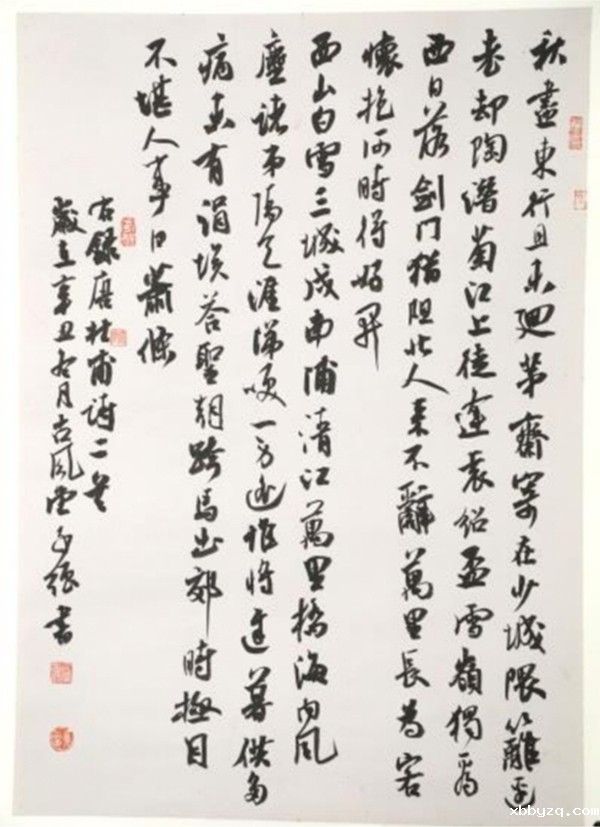 秋盡東行且未迴茅齋寄在少城隈籬邊
老却陶潛菊江上徒逢袁紹盃雪嶺獨看
西日落劍門猶阻北人來不辭萬里長為客
懷抱何時得好開
西山白雪三城戍南浦清江萬里橋海內風
塵諸弟隔天涯涕淚一身遙惟將遲暮供多
病未有涓埃答聖朝跨馬出郊時極目
不堪人事日蕭條
右錄唐杜甫詩二首
歲在辛丑冬月古風書
xbbyzq.com